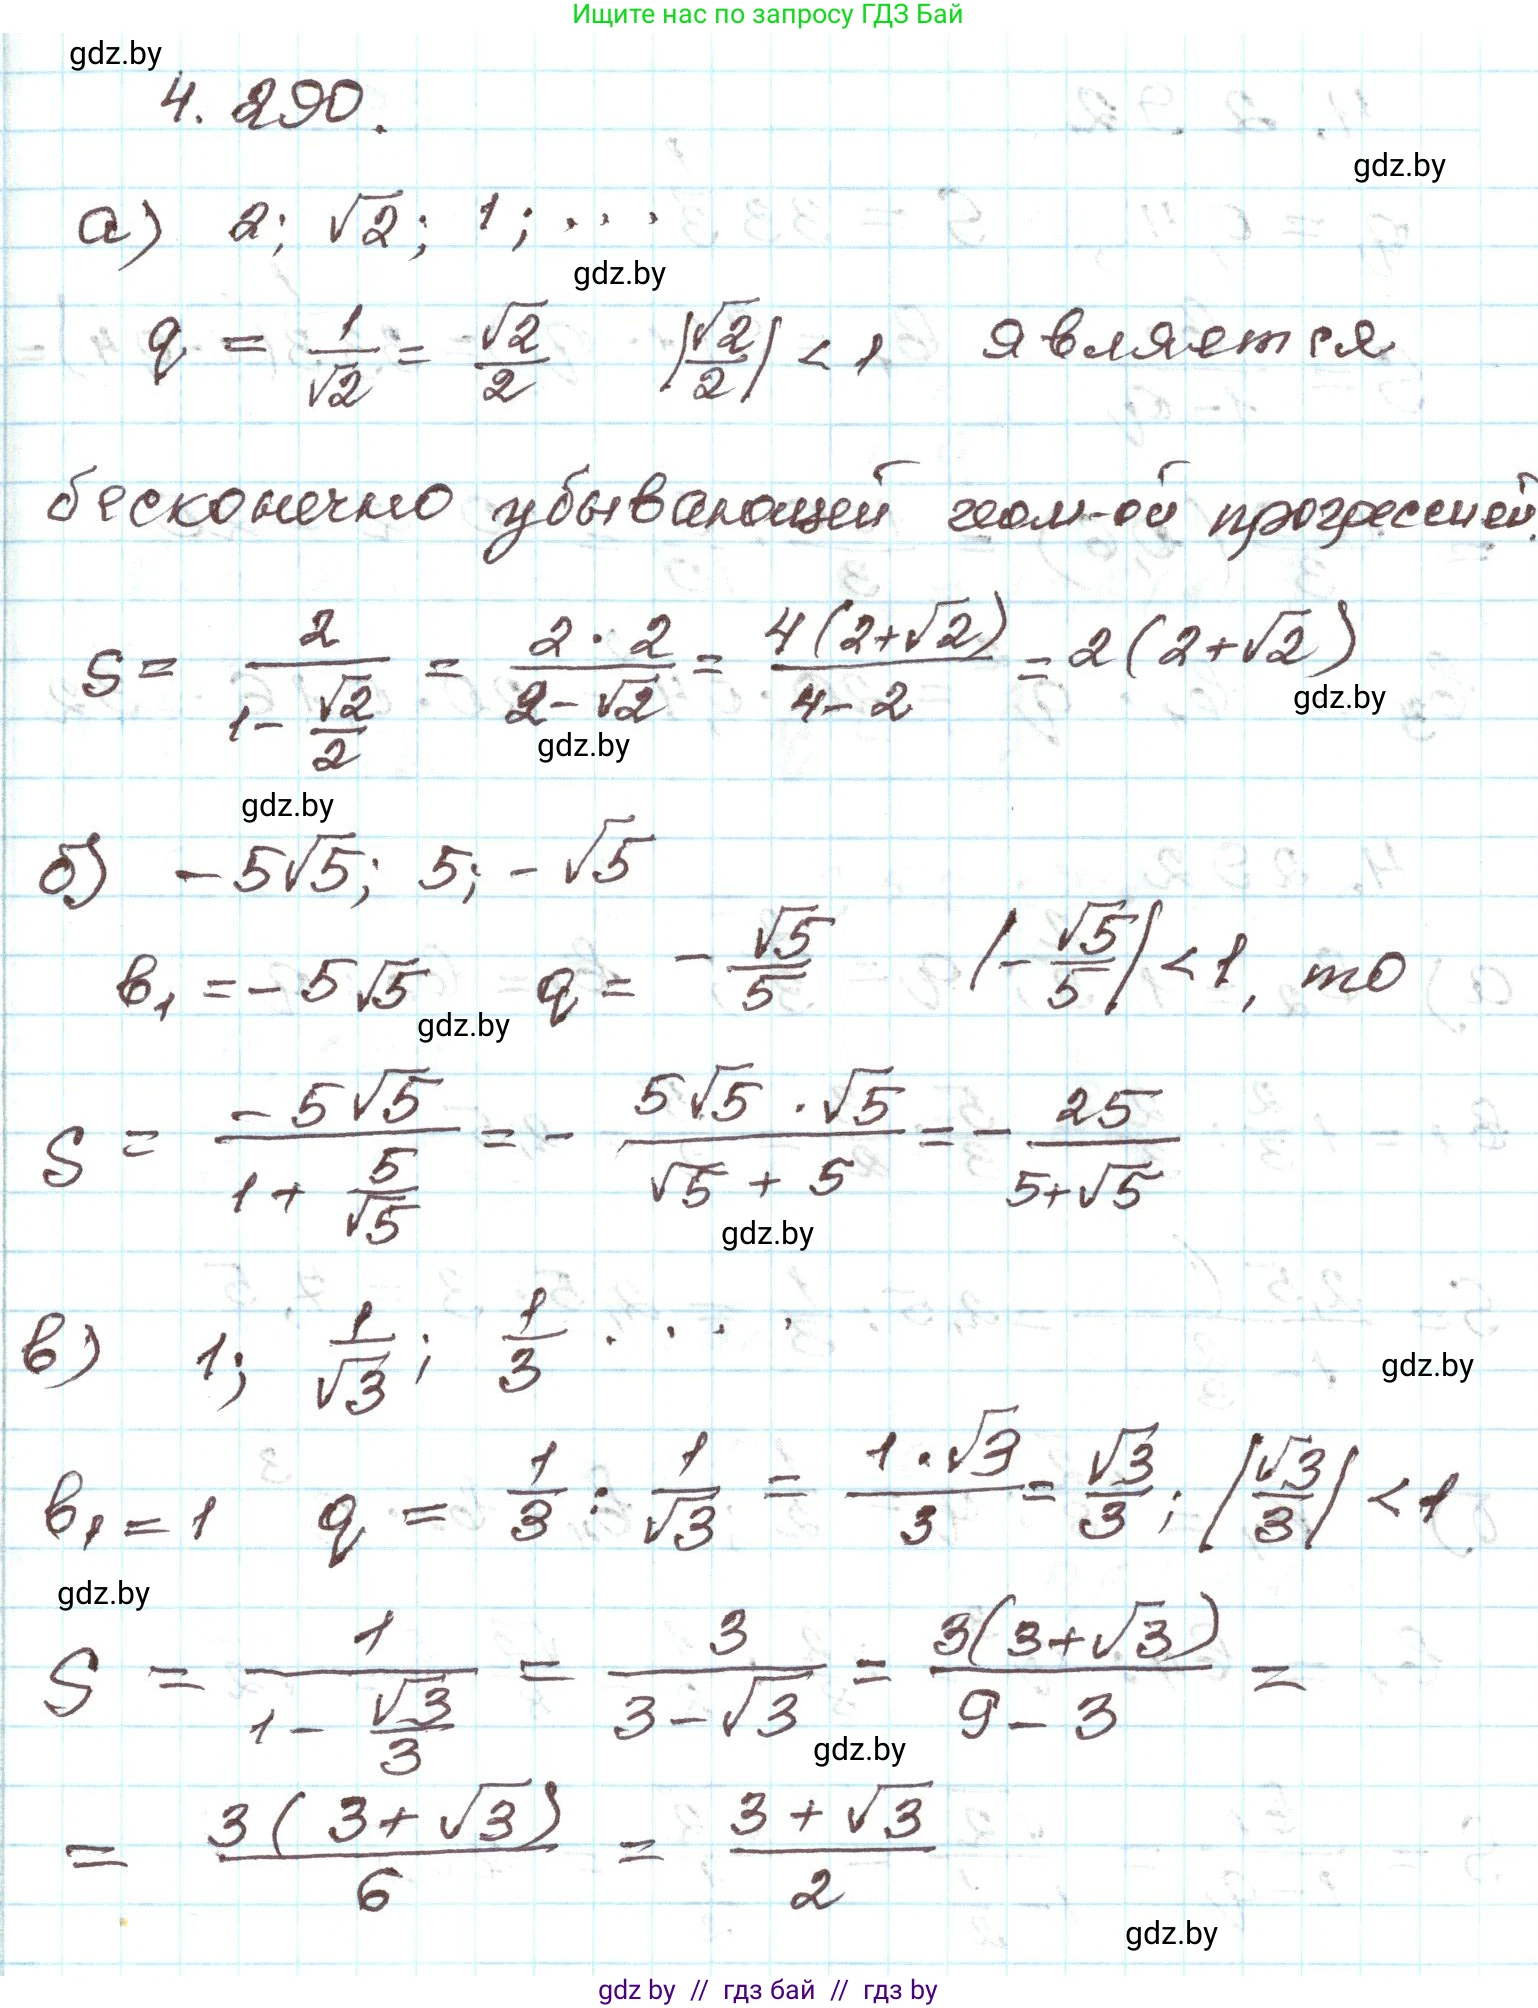 Ищите нас по запросу ГДЗ Бай
gdz.by
4.290.
gdz.by
а) 2; √2; 1; ...
gdz.by
q = 1/√2 = √2/2 |√2/2| < 1 является
бесконечно убывающей геом-ой прогрессией.
S = 2/(1 - √2/2) = 2·2/(2-√2) = 4(2+√2)/(4-2) = 2(2+√2)
gdz.by
gdz.by
gdz.by
б) -5√5; 5; -√5
b₁ = -5√5 q = -√5/5 |-√5/5| < 1, то
gdz.by
S = -5√5/(1 + 5/√5) = - 5√5·√5/(√5+5) = - 25/(5+√5)
gdz.by
в) 1; 1/√3; 1/3 ....
gdz.by
b₁ = 1 q = 1/3 : 1/√3 = 1·√3/3 = √3/3; |√3/3| < 1
gdz.by
S = 1/(1 - √3/3) = 3/(3-√3) = 3(3+√3)/(9-3) =
gdz.by
= 3(3+√3)/6 = (3+√3)/2
gdz.by
gdz by // гдз бай // гдз by